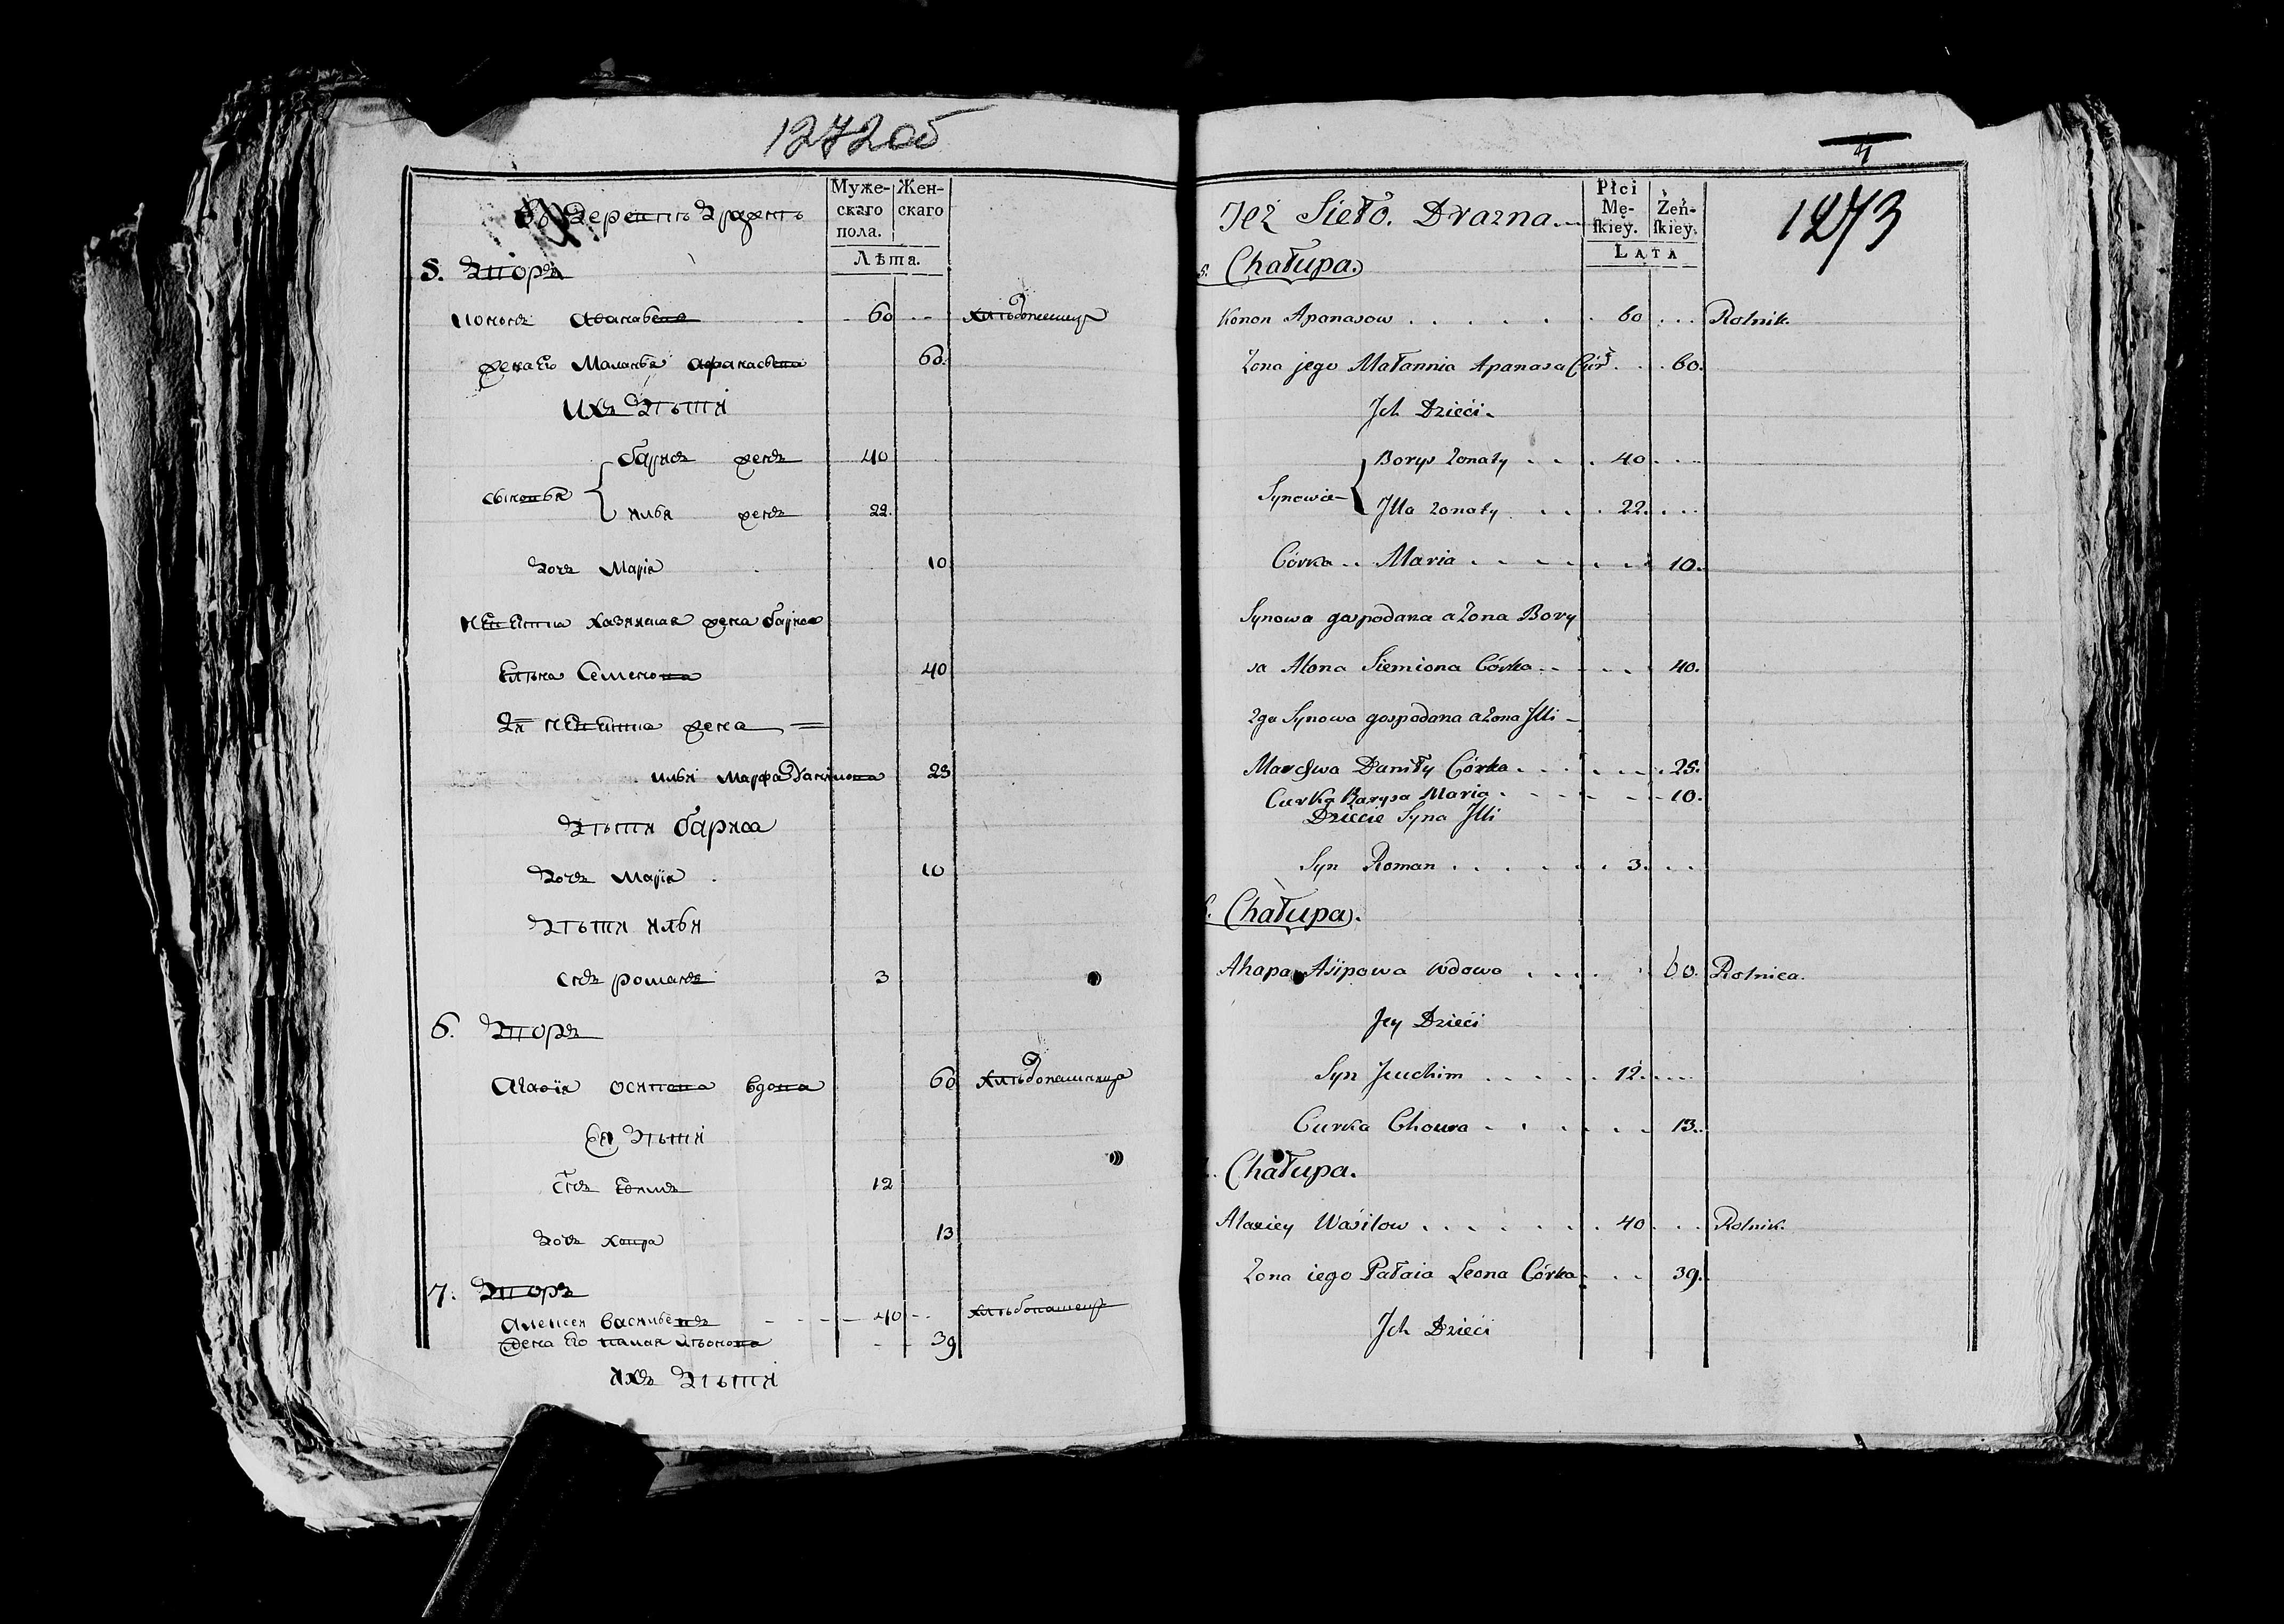 1272об
Муже-
скаго
пола.
Жен-
скаго
Лѣта.
5. Дворъ
Кононъ Афанасьевъ 60
жена его Маланья Афанасьева 60.
Ихъ дѣти
сыновья
Барисъ женъ 40
илья женъ 22.
дочь Марія 10
невѣстка хазяиская жена бариса
Елѣна Семенова 40
2я невѣстка жена
ильи марфа Данилова 25
дѣти бариса
дочь Марія 10
дѣти ильи
сынъ романъ 3
6. Дворъ
Агафія осипова вдова 60
Ея дѣти
сынъ Ефимъ 12
дочь 13
7. Дворъ
Алексей васильевъ 40
жена его 39
ихъ дѣти
4
1273
Też Sieło. Drazna.
Płci
Mę-
ſkiey.
Żeń-
ſkiey.
LATA
5. Chałupa.
Konon Apanasow 60 Rolnik.
Zona jego Małannia Apanasa Cór 60.
Jch Dzieći.
Synowie
Borys żonaty 40
Jlla żonaty 22.
Córka Maria 10.
Synowa gospodarza a żona Bory
sa Alona Siemiona Córka 40.
2ga Synowa gospodarza a żona Jlli
Danity Córka 25.
Curka Barysa Maria 10.
Dziecie Syna Jlli
Syn Roman 3.
6. Chałupa.
Ahapa Asipowa wdowa 60. Rolnica.
Jey Dzieći
Syn Jeuchim 12.
Curka Choura 13.
Chałupa.
Alaxiey Wasilow 40 Rolnik.
Zona iego Pałaia Leona Córka 39.
Jch Dzieći